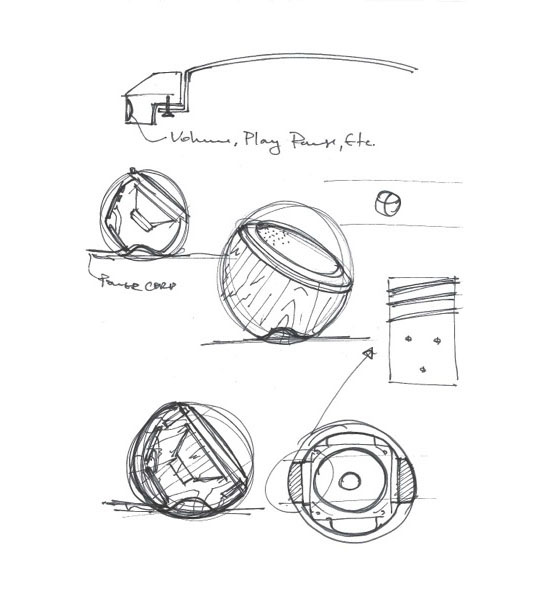 Volume, Play Pause, Etc.
Power CORD